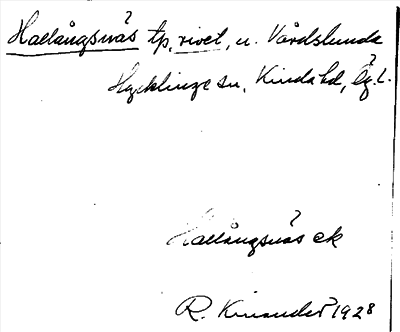 Hallångsnäs tp, rivet, u. Vårdslunda
Hycklinge sn, Kinda hd, Ög. L.
Hallångsnäs ek
R. Kinander 1928